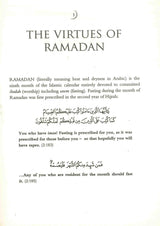 9
THE VIRTUES OF
RAMADAN
RAMADAN (literally meaning heat and dryness in Arabic) is the
ninth month of the Islamic calendar entirely devoted to committed
ibadah (worship) including sawm (fasting). Fasting during the month of
Ramadan was first prescribed in the second year of Hijrah.
يَا أَيُّهَا الَّذِينَ آمَنُوا كُتِبَ عَلَيْكُمُ الصِّيَامُ
كَمَا كُتِبَ عَلَى الَّذِينَ مِن قَبْلِكُمْ لَعَلَّكُمْ تَتَّقُونَ
You who have iman! Fasting is prescribed for you, as it was
prescribed for those before you – so that hopefully you will
have taqwa. (2:183)
فَمَن شَهِدَ مِنكُمُ الشَّهْرَ فَلْيَصُمْهُ
...Any of you who are resident for the month should fast
it. (2:185)